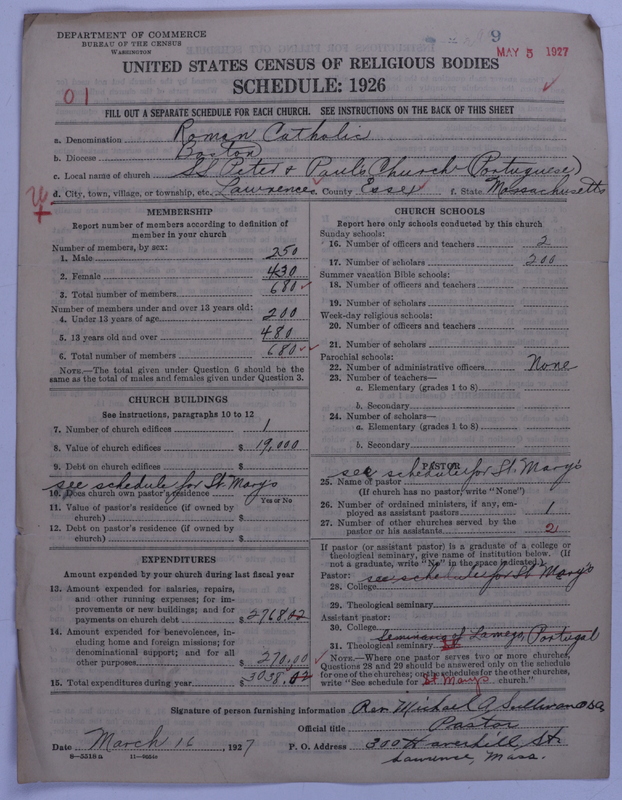 9
MAY 5 1927
DEPARTMENT OF COMMERCE
BUREAU OF THE CENSUS
WASHINGTON
UNITED STATES CENSUS OF RELIGIOUS BODIES
SCHEDULE: 1926
01
FILL OUT A SEPARATE SCHEDULE FOR EACH CHURCH. SEE INSTRUCTIONS ON THE BACK OF THIS SHEET
a. Denomination Roman Catholic
b. Diocese Boston
c. Local name of church SS Peter & Paul's Church (Portuguese)
d. City, town, village, or township, etc. Lawrence e. County Essex f. State Massachusetts
MEMBERSHIP
Report number of members according to definition of
member in your church
Number of members, by sex:
1. Male 250
2. Female 430
3. Total number of members 680
Number of members under and over 13 years old:
4. Under 13 years of age 200
5. 13 years old and over 480
6. Total number of members 680
NOTE.—The total given under Question 6 should be the
same as the total of males and females given under Question 3.
CHURCH BUILDINGS
See instructions, paragraphs 10 to 12
7. Number of church edifices 1
8. Value of church edifices $ 19,000
9. Debt on church edifices $
see schedule for St Mary's
10. Does church own pastor's residence
Yes or No
11. Value of pastor's residence (if owned by
church) $
12. Debt on pastor's residence (if owned by
church) $
EXPENDITURES
Amount expended by your church during last fiscal year
13. Amount expended for salaries, repairs,
and other running expenses; for im-
provements or new buildings; and for
payments on church debt $ 2768.02
14. Amount expended for benevolences, in-
cluding home and foreign missions; for
denominational support; and for all
other purposes 270.00
15. Total expenditures during year $ 3038.02
CHURCH SCHOOLS
Report here only schools conducted by this church
Sunday schools:
16. Number of officers and teachers 2
17. Number of scholars 200
Summer vacation Bible schools:
18. Number of officers and teachers
19. Number of scholars
Week-day religious schools:
20. Number of officers and teachers
21. Number of scholars
Parochial schools:
22. Number of administrative officers None
23. Number of teachers—
a. Elementary (grades 1 to 8)
b. Secondary
24. Number of scholars—
a. Elementary (grades 1 to 8)
b. Secondary
PASTOR
see schedule for St. Mary's
25. Name of pastor
(If church has no pastor, write "None")
26. Number of ordained ministers, if any, em-
ployed as assistant pastors 1
27. Number of other churches served by the
pastor or his assistants 2
If pastor (or assistant pastor) is a graduate of a college or
theological seminary, give name of institution below. (If
not a graduate, write "No" in the space indicated.)
Pastor: see schedule for St Mary's
28. College
29. Theological seminary
Assistant pastor:
30. College
Seminary of Lamego, Portugal
31. Theological seminary
NOTE.—Where one pastor serves two or more churches,
Questions 28 and 29 should be answered only on the schedule
for one of the churches; on the schedules for the other churches,
write "See schedule for St Mary's church."
Signature of person furnishing information Rev. Michael A Sullivan OSA
Official title Pastor
Date March 16, 1927 P. O. Address 300 Haverhill, St.
Lawrence, Mass.
8—5518 a